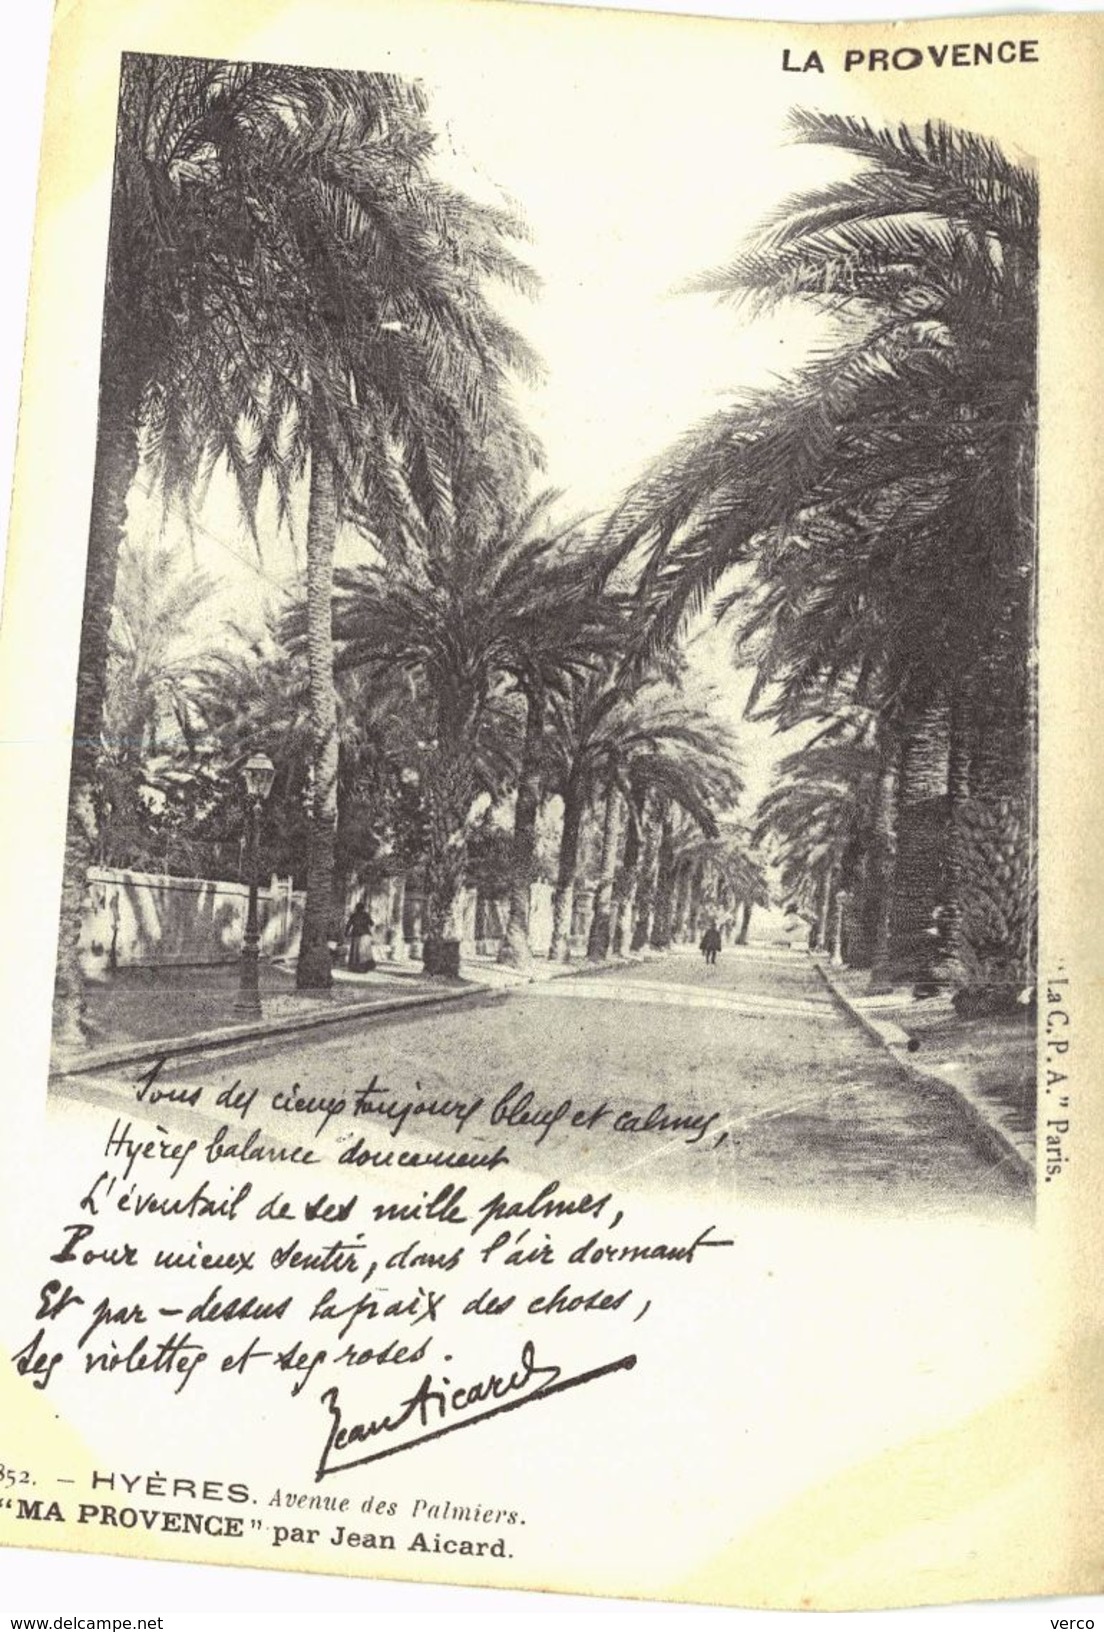 LA PROVENCE
"La C. P. A." Paris.
Sous des cieux toujours bleus et calmes,
Hyères balance doucement
L'éventail de ses mille palmes,
Pour mieux sentir, dans l'air dormant
Et par-dessus la paix des choses,
Ses violettes et ses roses.
Jean Aicard
852. — HYÈRES. Avenue des Palmiers.
"MA PROVENCE" par Jean Aicard.
www.delcampe.net
verco